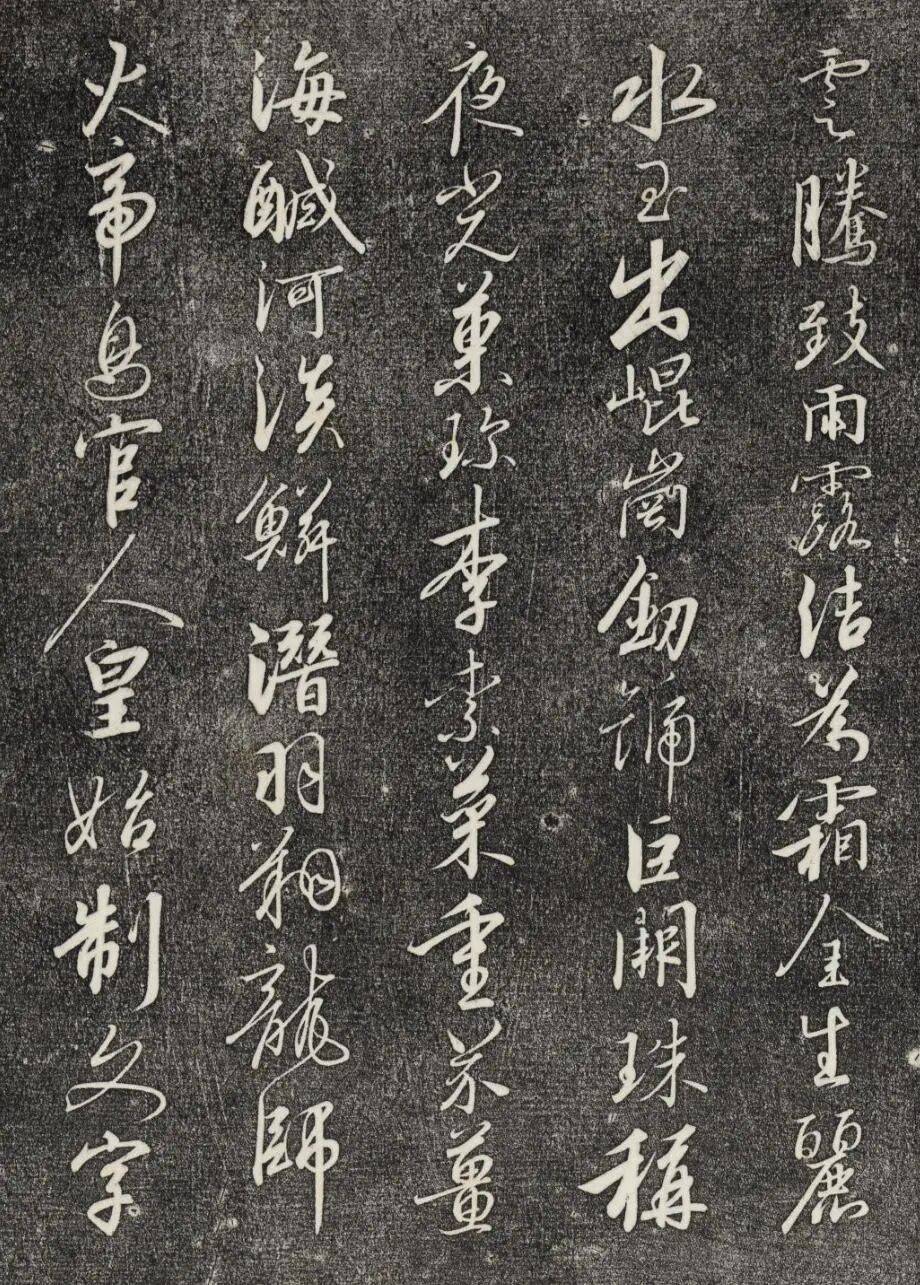 雲騰致雨露結為霜金生麗
水玉出崐崗劒號巨闕珠稱
夜光菓珎李柰菜重芥薑
海醎河淡鱗潛羽翔龍師
火帝鳥官人皇始制文字